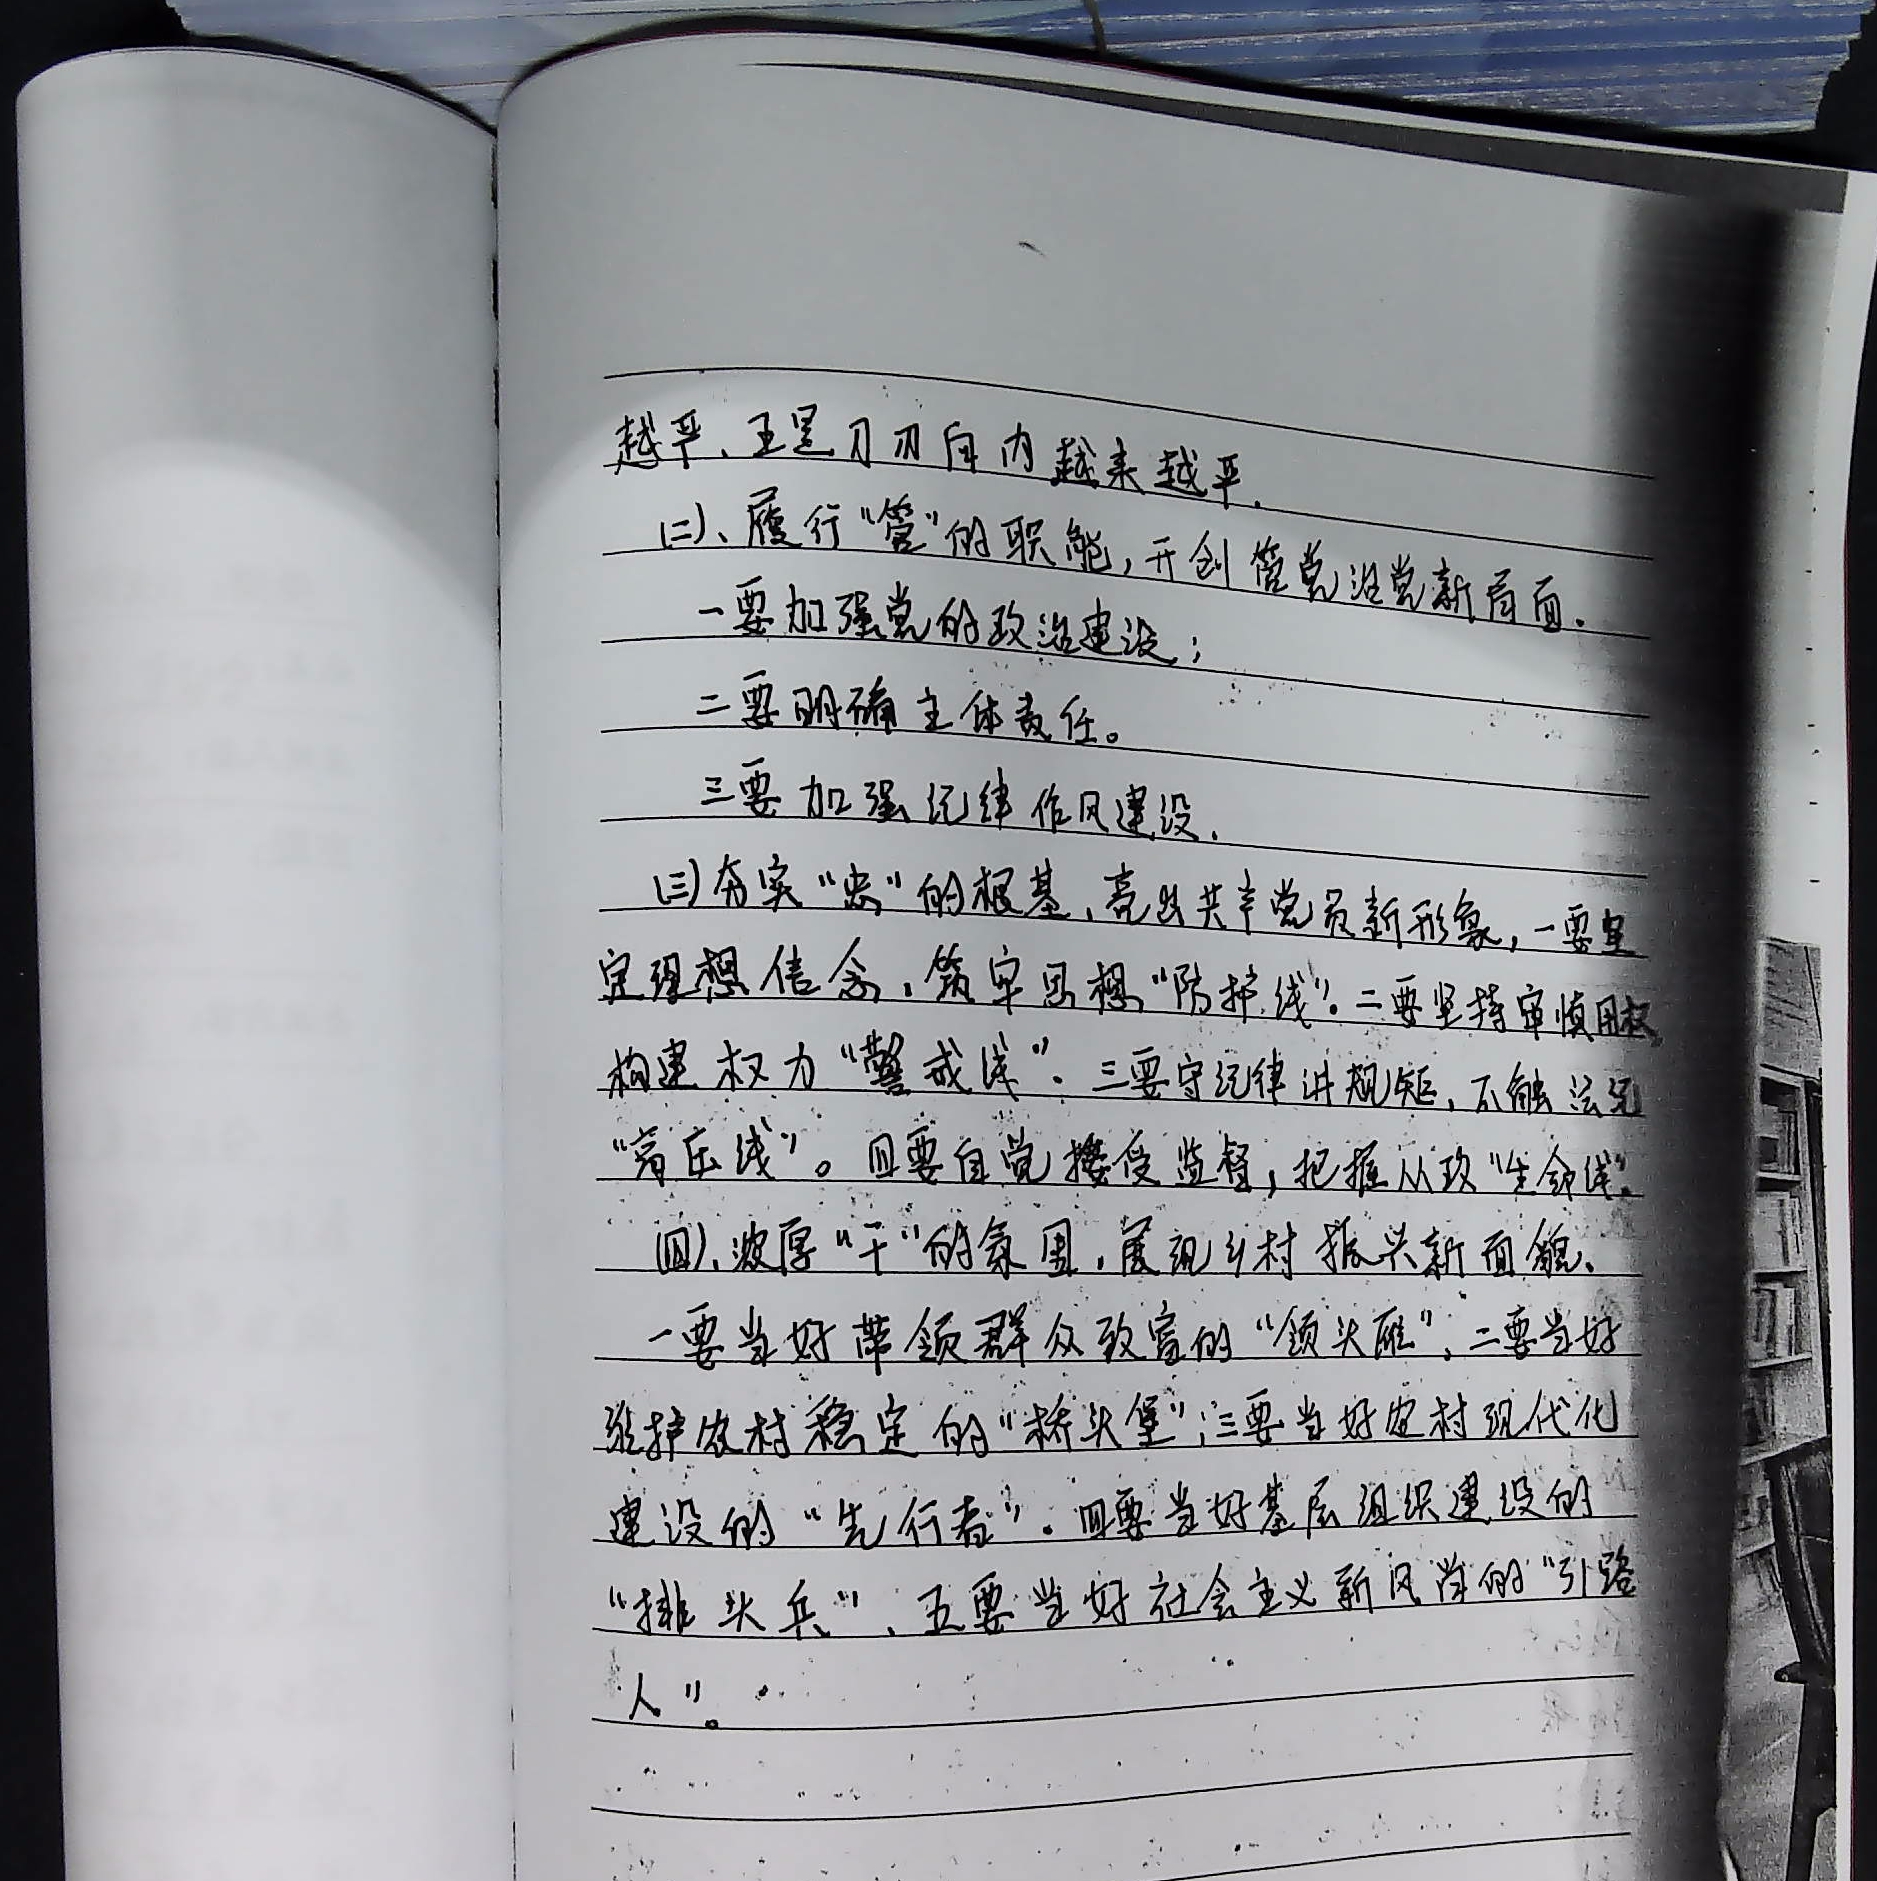 越严、五是刀刃向内越来越严.
(二)、履行“管”的职能,开创管党治党新局面.
一要加强党的政治建设;
二要明确主体责任。
三要加强纪律作风建设.
(三)夯实“忠”的根基,亮出共产党员新形象,一要坚
定理想信念,筑牢思想“防护线”.二要坚持审慎用权,
构建权力“警戒线”.三要守纪律讲规矩,不触法纪
“高压线”。四要自觉接受监督,把握从政“生命线”.
(四)、浓厚“干”的氛围,展现乡村振兴新面貌、
一要当好带领群众致富的“领头雁”;二要当好
维护农村稳定的“桥头堡”;三要当好农村现代化
建设的“先行者”.四要当好基层组织建设的
“排头兵”、五要当好社会主义新风尚的“引路
人”。